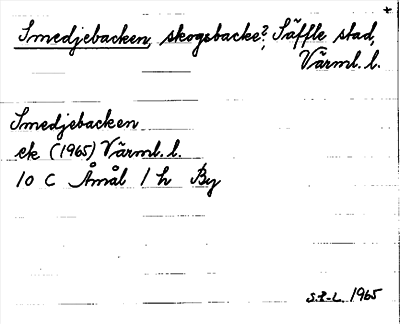 +
Smedjebacken, skogsbacke?, Säffle stad,
Värml. l.
Smedjebacken
ek (1965) Värml. l.
10 C Åmål 1 h By
S.E-L. 1965